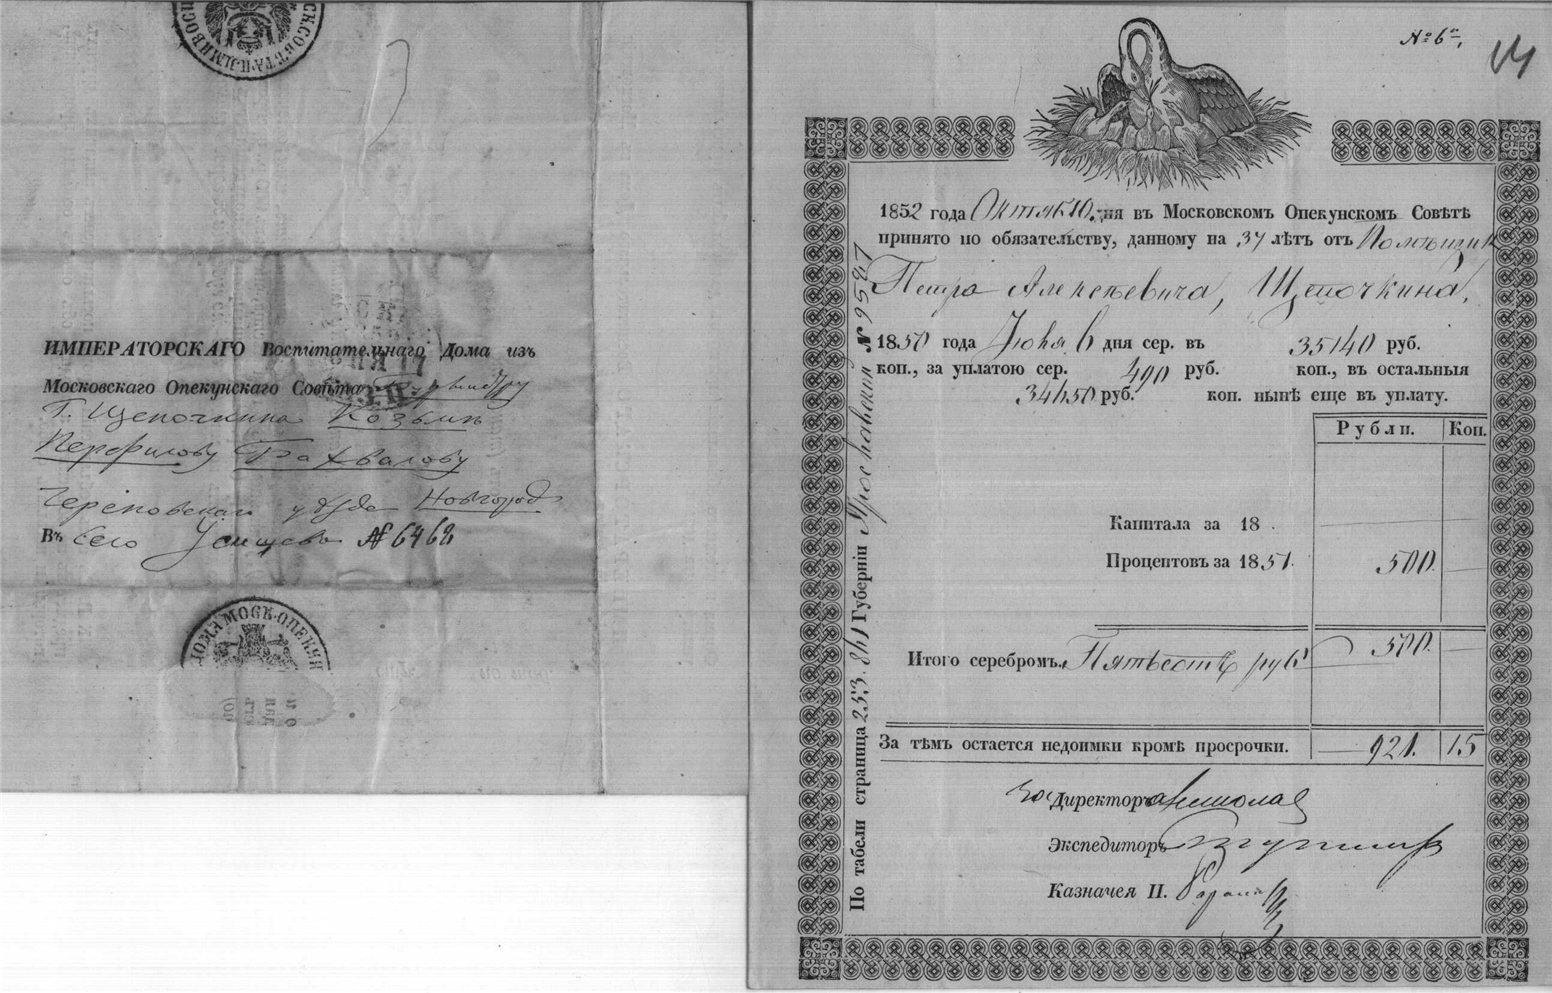 ИМПЕРАТОРСКАГО Воспитательнаго Дома изъ
Московскаго Опекунскаго Совѣта Бурмистру
Г. Щепочкина Козьмѣ
Перфилову Бахвалову
Череповскаго уѣзда Новгород
Въ село № 6462
ДОМА МОСК. ОПЕКУН
№ 6
1852 года Октяб 10 дня въ Московскомъ Опекунскомъ Совѣтѣ
принято по обязательству, данному на 37 лѣтъ отъ
Петра Алексѣевича, Щепочкина,
1850 года Іюня 6 дня сер. въ 35140 руб.
коп., за уплатою сер. 490 руб. коп., въ остальныя
34650 руб. коп. нынѣ еще въ уплату.
Рубли. Коп.
Капитала за 18 .
Процентовъ за 1851. 500.
Итого серебромъ. Пятьсотъ руб 500.
За тѣмъ остается недоимки кромѣ просрочки. 921. 15
За Директора
Экспедиторъ
Казначея П.
По табели страница 253. 841 Губерніи Ярославской № 9527